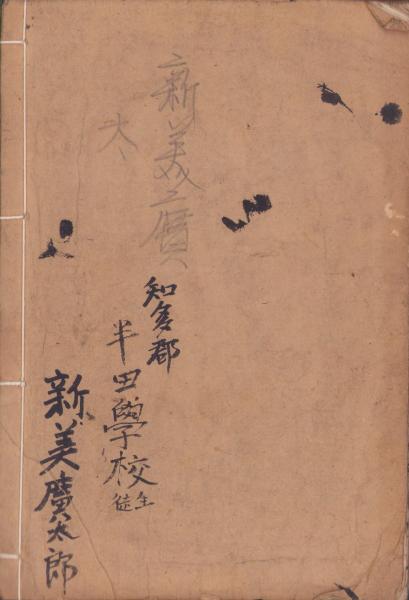 新美廣
太
知多郡
半田學校
生徒
新美廣太郎